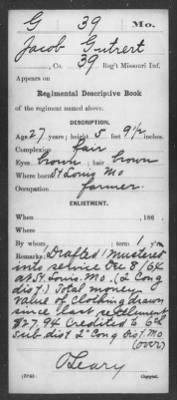 G 39 Mo.
Jacob Gutrert
, Co. 39 Reg't Missouri Inf.
Appears on
Regimental Descriptive Book
of the regiment named above.
DESCRIPTION.
Age 27 years; height 5 feet 9½ inches
Complexion fair
Eyes brown; hair brown
Where born St Louis Mo
Occupation farmer
ENLISTMENT.
When , 186 .
Where
By whom ; term 1 y'rs
Remarks: Drafted & mustered
into service Dec 8/64
at St. Louis. Mo. (2 Cong
dist.) Total money
value of clothing drawn
since last settlement
$27.94 Credited to 6th
sub dist 2" Cong Dist. Mo
(over)
O'Leary
Copyist.